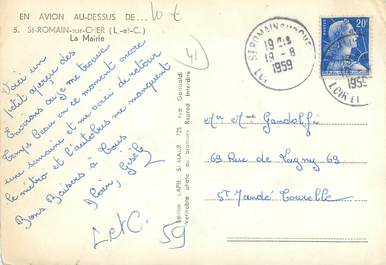 EN AVION AU-DESSUS DE...
10 €
5. St-ROMAIN-sur-CHER (L.-et-C.)
La Mairie
41
Voici un
petit aperçu des
Environs où je me trouve
Temps Beau en ce moment encore
une semaine et me voici de retour
le métro et l'autobus me manquent
Bons Baisers à Tous
Gisèle
L et C.
59
Edition LAPIE, St-MAUR 125, rue Garibaldi
Véritable photo au bromure Reprod Interdite
St ROMAIN SUR CHER
19 -8
1959
LOIR ET
20F
Mr Mme Gandolfi
69 Rue de Lagny 69
St Mandé Tourelle